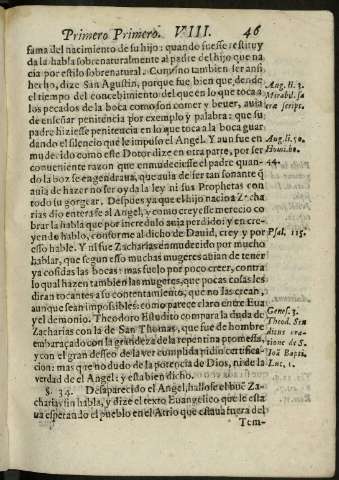 Primero Primero. VIII. 46
fama del nacimiento de su hijo: quando fuesse restituy
da la habla sobrenaturalmente al padre del hijo que na
cia por estilo sobrenatural. Conuino tambien ser ansi
hecho, dize San Agustin, porque fue bien que dende
el tiempo del concebimiento del que en lo que toca a
los pecados de la boca como son comer y beuer, auia
de enseñar penitencia por exemplo y palabra: que su
padre hiziesse penitencia en lo que toca a la boca guar
dando el silencio que le impuso el Angel. Y aun fue en
mudecido como esse Dotor dize en otra parte, por ser
conueniente razon que enmudeciesse el padre quan-
do la boz se engendraua, que auia de ser tan sonante q̃
auia de hazer no ser oyda la ley ni sus Prophetas con
todo su gorgear. Despues ya que el hijo nacio a Zcha
rias dio entera fe al Angel, y como creyesse merecio co
brar la habla que por incredulo auia perdido: y en cre-
yendo hablo, conforme al dicho de Dauid, crey y por
esso hable. Y ni fue Zacharias enmudecido por mucho
hablar, que segun esso muchas mugeres abian de tener
ya cosidas las bocas: mas fuelo por poco creer, contra
lo qual hazen tambien las mugeres, que pocas cosas les
diran tocantes a su contentamiento, que no las crean,
aunque sean impossibles: como parece claro entre Eua
y el demonio. Theodoro Estudito compara la duda de
Zacharias con la de San Thomas, que fue de hombre
embaraçado con la grandeza de la repentina promessa,
y con el gran desseo de la ver cumplida pidio certifica-
cion: mas que no dudo de la potencia de Dios, ni de la
verdad de el Angel: y esta bien dicho.
§. 34. Desaparecido el Angel, hallose el buē Za-
charias sin habla, y dize el texto Euangelico que le esta
ua esperando el pueblo en el Atrio que estaua fuera del
Tem-
Aug. li. 3.
Mirabil. sa
cræ script.
Aug. li. 50.
Hom. ho.
44.
Psal. 115.
Genes. 3.
Theod. Stu
dites ora-
tione de S.
Ioã Bapti.
Luc. 1.